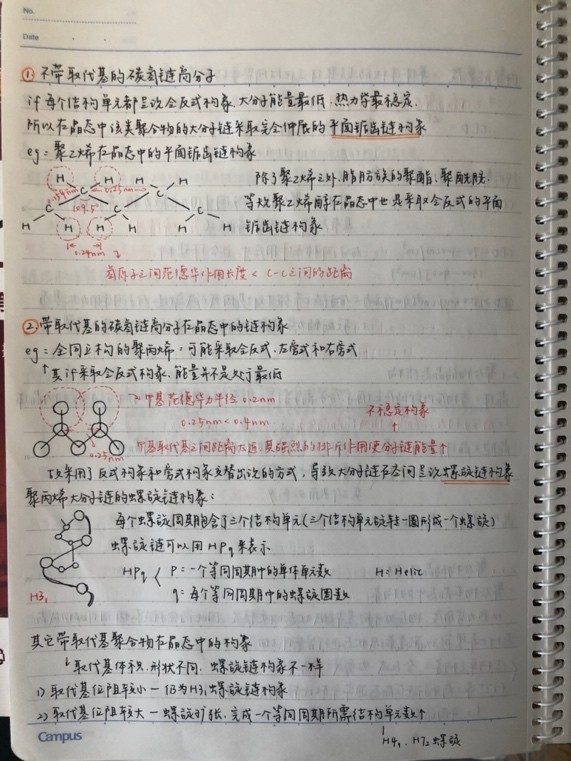 No.
Date
① 不带取代基的碳氢链高分子
if 每个结构单元都呈次全反式构象, 大分子能量最低, 热力学最稳定.
所以在晶态中该类聚合物的大分子链采取完全伸展的平面锯齿链构象
eg: 聚乙烯在晶态中的平面锯齿链构象
除了聚乙烯之外, 脂肪族的聚酯, 聚酰胺.
等效聚乙烯醇在晶态中也是采取全反式的平面
锯齿链构象
H H H H
0.154nm 0.25nm
C C C C C
109.5°
H H H H
0.24nm
氢原子之间范德华作用长度 < C-C之间的距离
② 带取代基的碳氢链高分子在晶态中的链构象
eg: 全同立构的聚丙烯: 可能采取全反式, 左旁式和右旁式
↑ 其if采取全反式构象, 能量并不是处于最低
甲基范德华力半径 0.2nm
0.25nm < 0.4nm
不稳定构象
0.25nm
甲基取代基之间距离太近, 其强烈的排斥作用使分子链能量↑
故采用了反式构象和旁式构象交替出次的方式, 导致大分子链在空间呈次螺旋链构象
聚丙烯大分子链的螺旋链构象:
每个螺旋周期包含了三个结构单元(三个结构单元旋转一圈形成一个螺旋)
螺旋链可以用 HPq 来表示
HPq < P = 一个等同周期中的单体单元数 H = Helic
q = 每个等同周期中的螺旋圈数
H3₁
其它带取代基聚合物在晶态中的构象
↳ 取代基体积, 形状不同, 螺旋链构象不一样
1) 取代基位阻较小 — 仍为H3₁螺旋链构象
2) 取代基位阻较大 — 螺旋扩张, 完成一个等同周期所需结构单元数↑
H4₁, H7₂螺旋
Campus